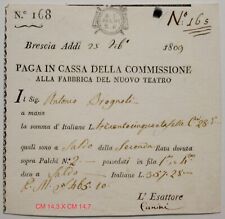 N.° 168
N.° 168
Brescia Addi 23 Feb.° 1809
PAGA IN CASSA DELLA COMMISSIONE
ALLA FABBRICA DEL NUOVO TEATRO
Il Sig. Antonio Brognoli
a mano
la somma d'Italiane L. trecentocinquantasette
quali sono a Saldo della Seconda Rata dovuta
sopra Palchi N.° 2 posseduti in fila
dico a Saldo Italiane L. 357.28
L'Esattore
CM 14,3 X CM 14,7